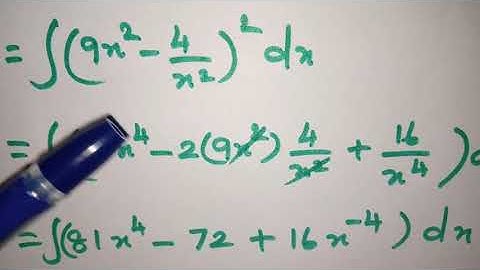 = ∫(9x² - 4/x²)² dx
= ( x⁴ - 2(9x²) 4/x² + 16/x⁴ )
= ∫(81x⁴ - 72 + 16x⁻⁴) dx